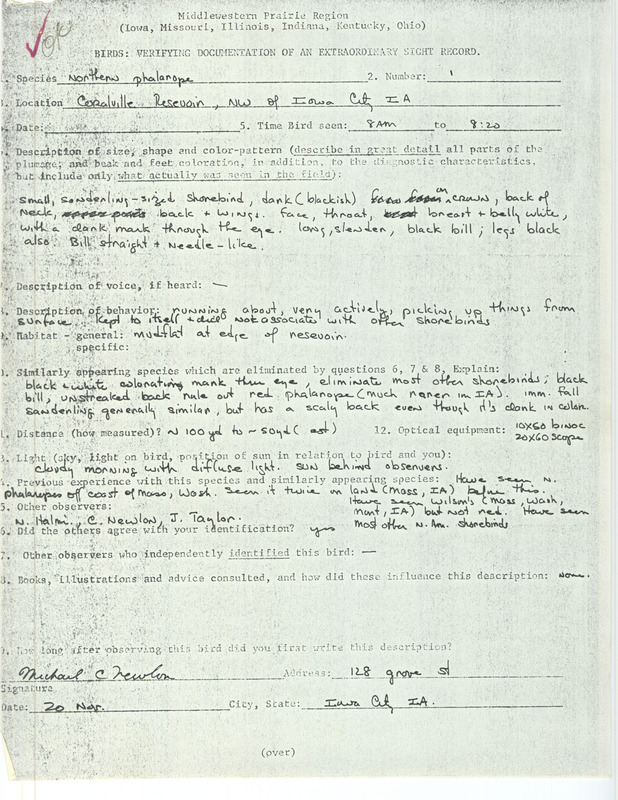 ok
Middlewestern Prairie Region
(Iowa, Missouri, Illinois, Indiana, Kentucky, Ohio)
BIRDS: VERIFYING DOCUMENTATION OF AN EXTRAORDINARY SIGHT RECORD.
. Species Northern phalarope 2. Number: 1
. Location Coralville Resevoir, NW of Iowa City IA
. Date: 5. Time Bird seen: 8AM to 8:20
. Description of size, shape and color-pattern (describe in great detail all parts of the
plumage, and beak and feet coloration, in addition, to the diagnostic characteristics,
but include only what actually was seen in the field):
small, sanderling-sized shorebird, dark (blackish) on crown, back of
neck, back + wings. face, throat, breast + belly white,
with a dark mark through the eye. long, slender, black bill; legs black
also. Bill straight + needle-like.
. Description of voice, if heard: —
. Description of behavior: running about, very actively, picking up things from
surface. Kept to itself + did not associate with other shorebirds
. Habitat - general: mudflat at edge of resevoir.
specific:
. Similarly appearing species which are eliminated by questions 6, 7 & 8, Explain:
black + white coloration, mark thru eye, eliminate most other shorebirds; black
bill, unstreaked back rule out red phalarope (much rarer in IA). imm. fall
sanderling generally similar, but has a scaly back even though it's dark in color.
. Distance (how measured)? ~ 100 yd to ~ 50yd (est) 12. Optical equipment: 10x50 binoc
20x60 scope
3. Light (sky, light on bird, position of sun in relation to bird and you):
cloudy morning with diffuse light. sun behind observers.
4. Previous experience with this species and similarly appearing species: Have seen N.
phalarope off coast of Mass, Wash. Seen it twice on land (Mass, IA) before this.
Have seen Wilson's (Mass, Wash,
5. Other observers: Mont, IA) but not red. Have seen
N. Halmi, C. Newlon, J. Taylor. most other N. Am. shorebirds
6. Did the others agree with your identification? yes
7. Other observers who independently identified this bird: —
8. Books, illustrations and advice consulted, and how did these influence this description: none.
9. How long after observing this bird did you first write this description?
Michael C Newlon Address: 128 grove st
Signature
Date: 20 Nov. City, State: Iowa City IA.
(over)